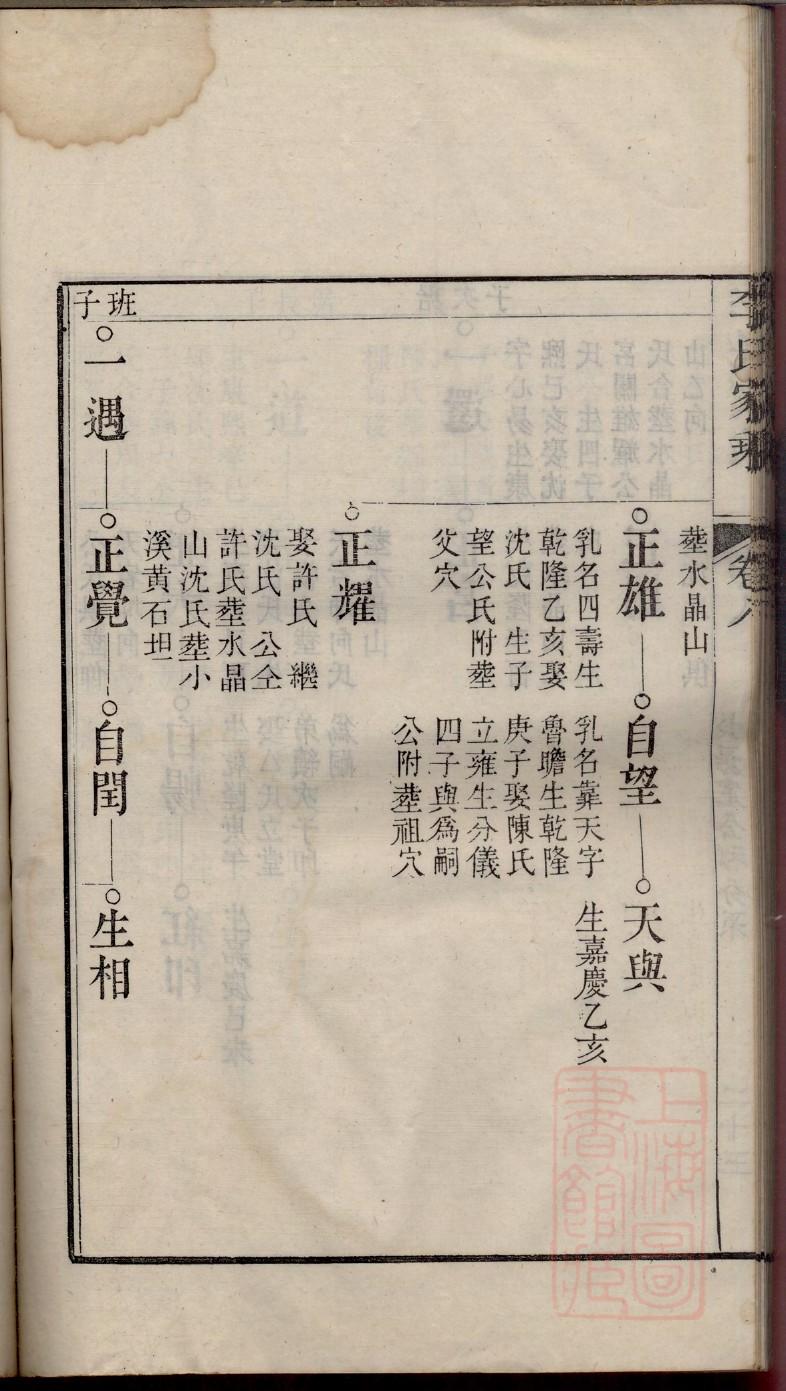 李氏家乘
卷八
塟水晶山
正雄
乳名四壽生
乾隆乙亥娶
沈氏　生子
望公氏附塟
父穴
自望
乳名葬天字
魯瞻生乾隆
庚子娶陳氏
立雍生分儀
四子與爲嗣
公附塟祖穴
天與
生嘉慶乙亥
正耀
娶許氏　繼
沈氏　公仝
許氏塟水晶
山沈氏塟小
溪黃石坦
班子
一遇
正覺
自閏
生相
上海圖書館藏